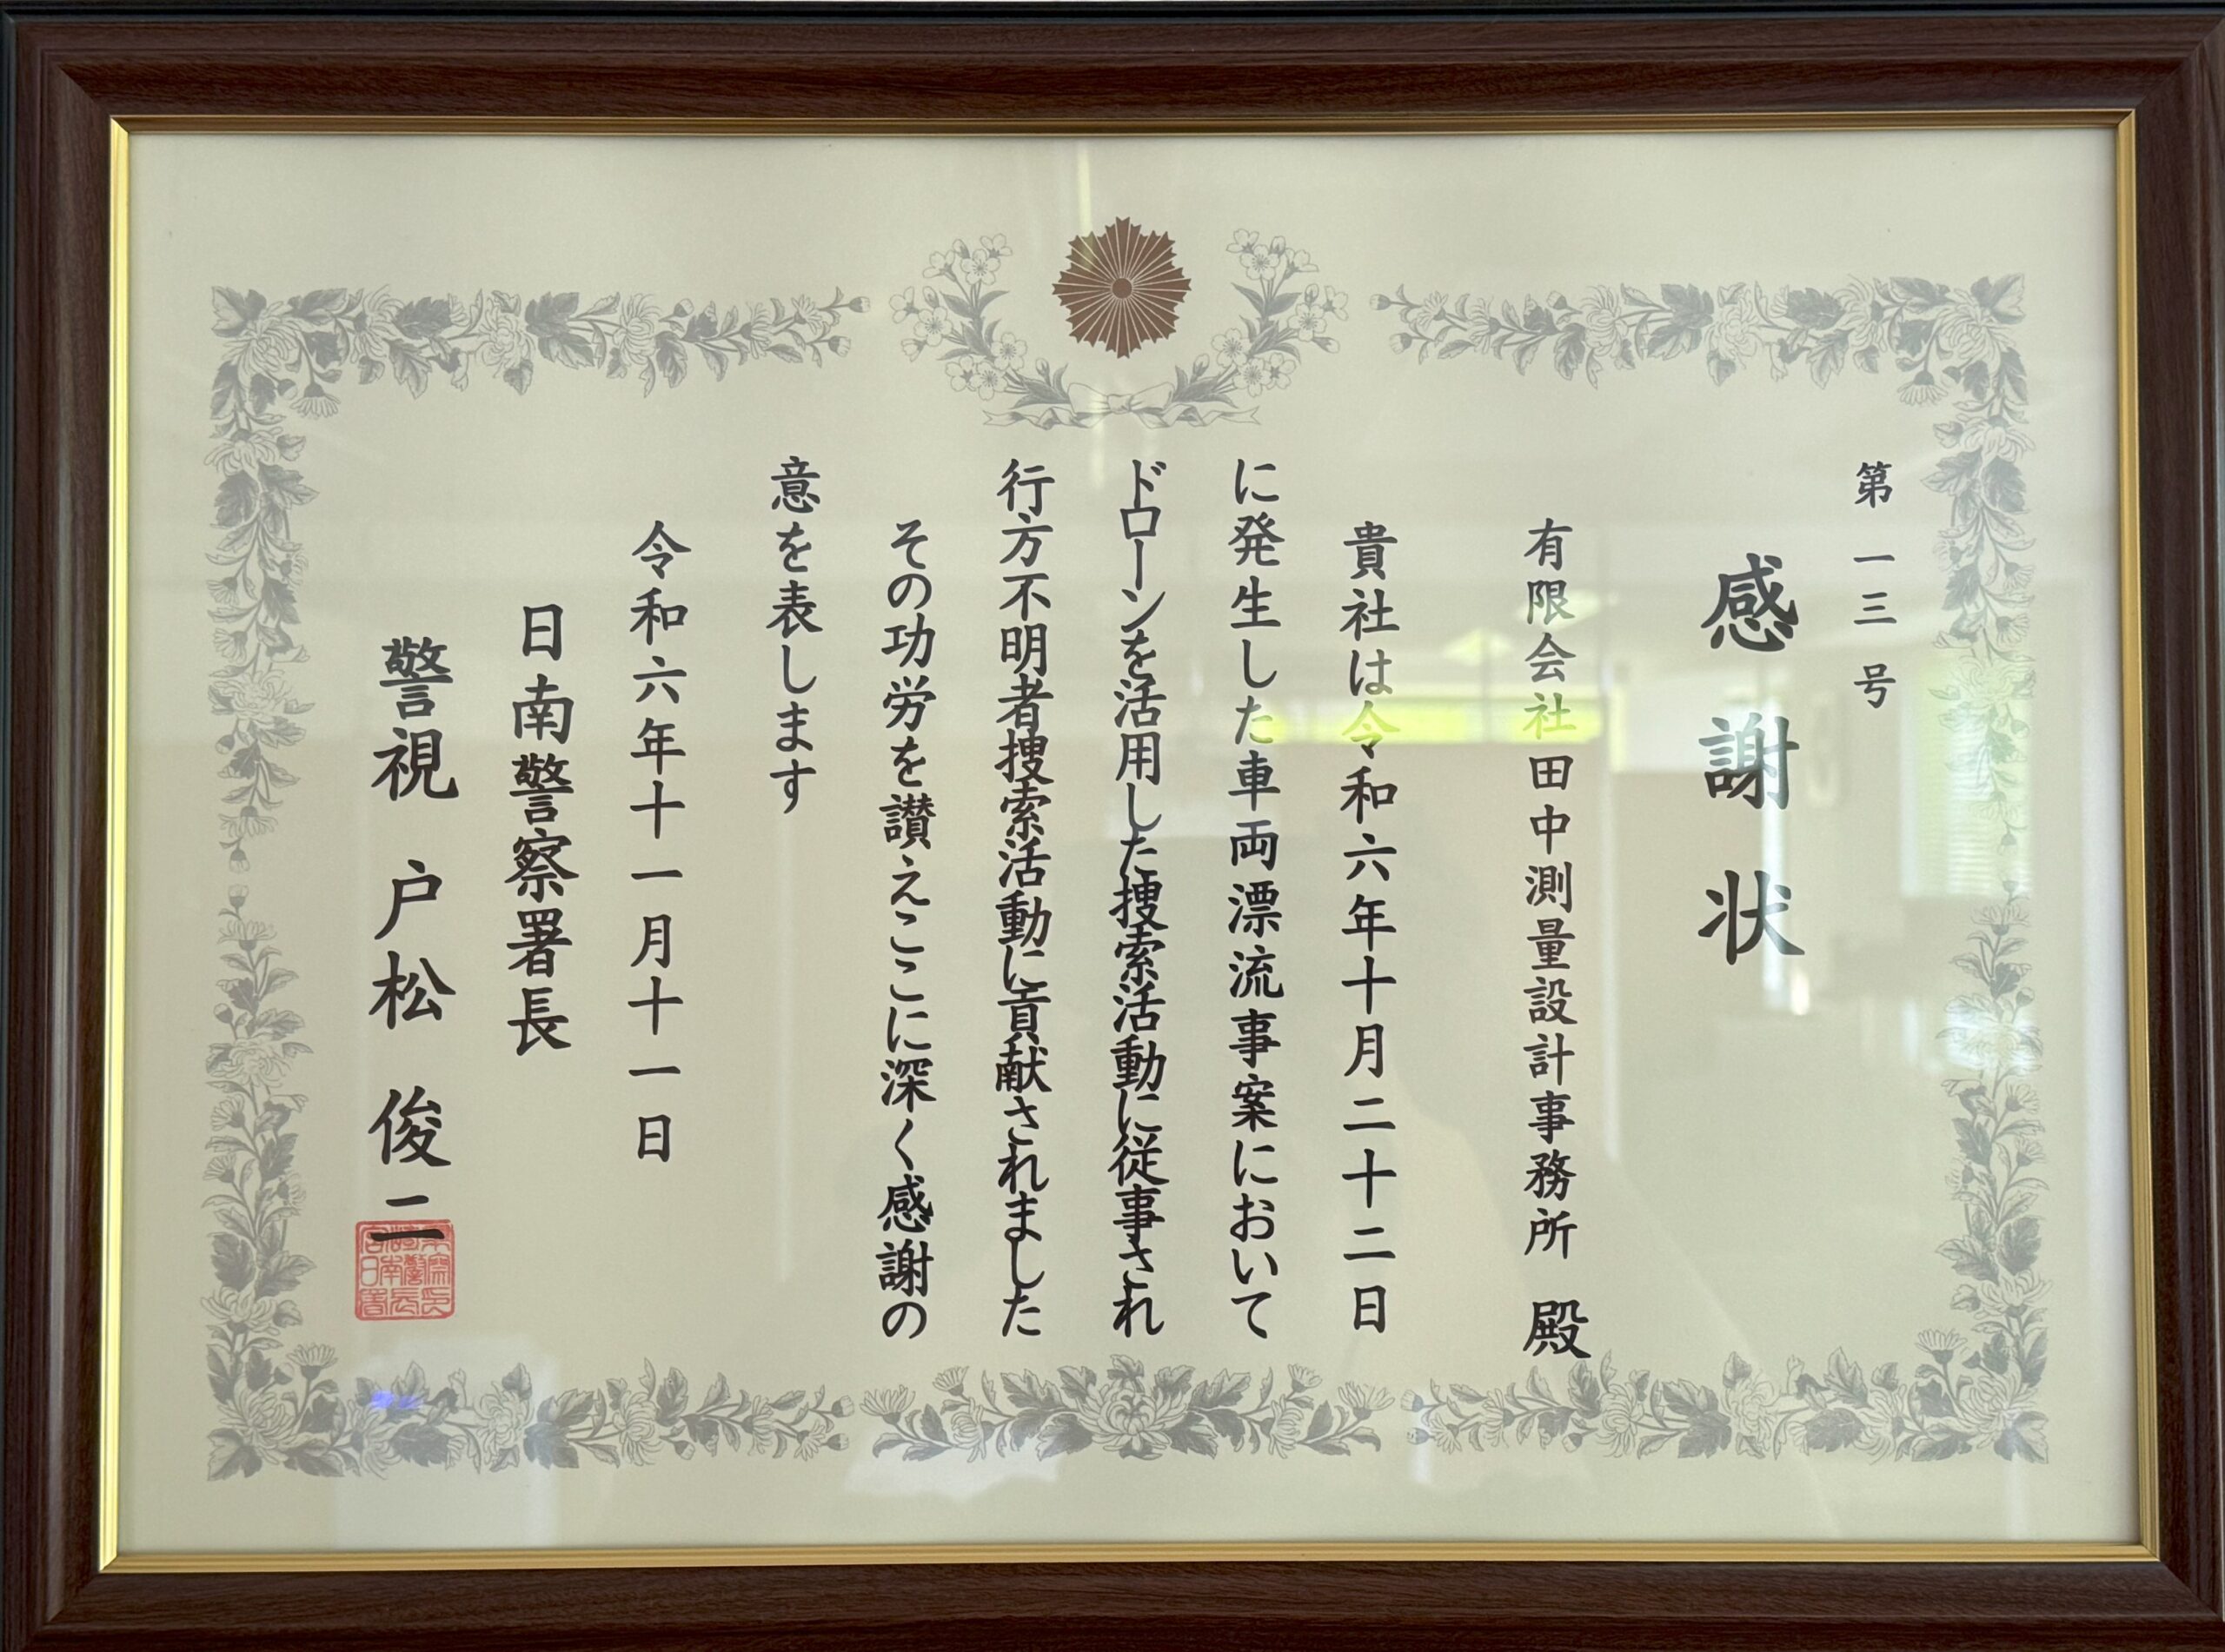 第一三号
感謝状
有限会社田中測量設計事務所 殿
貴社は令和六年十月二十二日
に発生した車両漂流事案において
ドローンを活用した捜索活動に従事され
行方不明者捜索活動に貢献されました
その功労を讃えここに深く感謝の
意を表します
令和六年十一月十一日
日南警察署長
警視 戸松 俊二